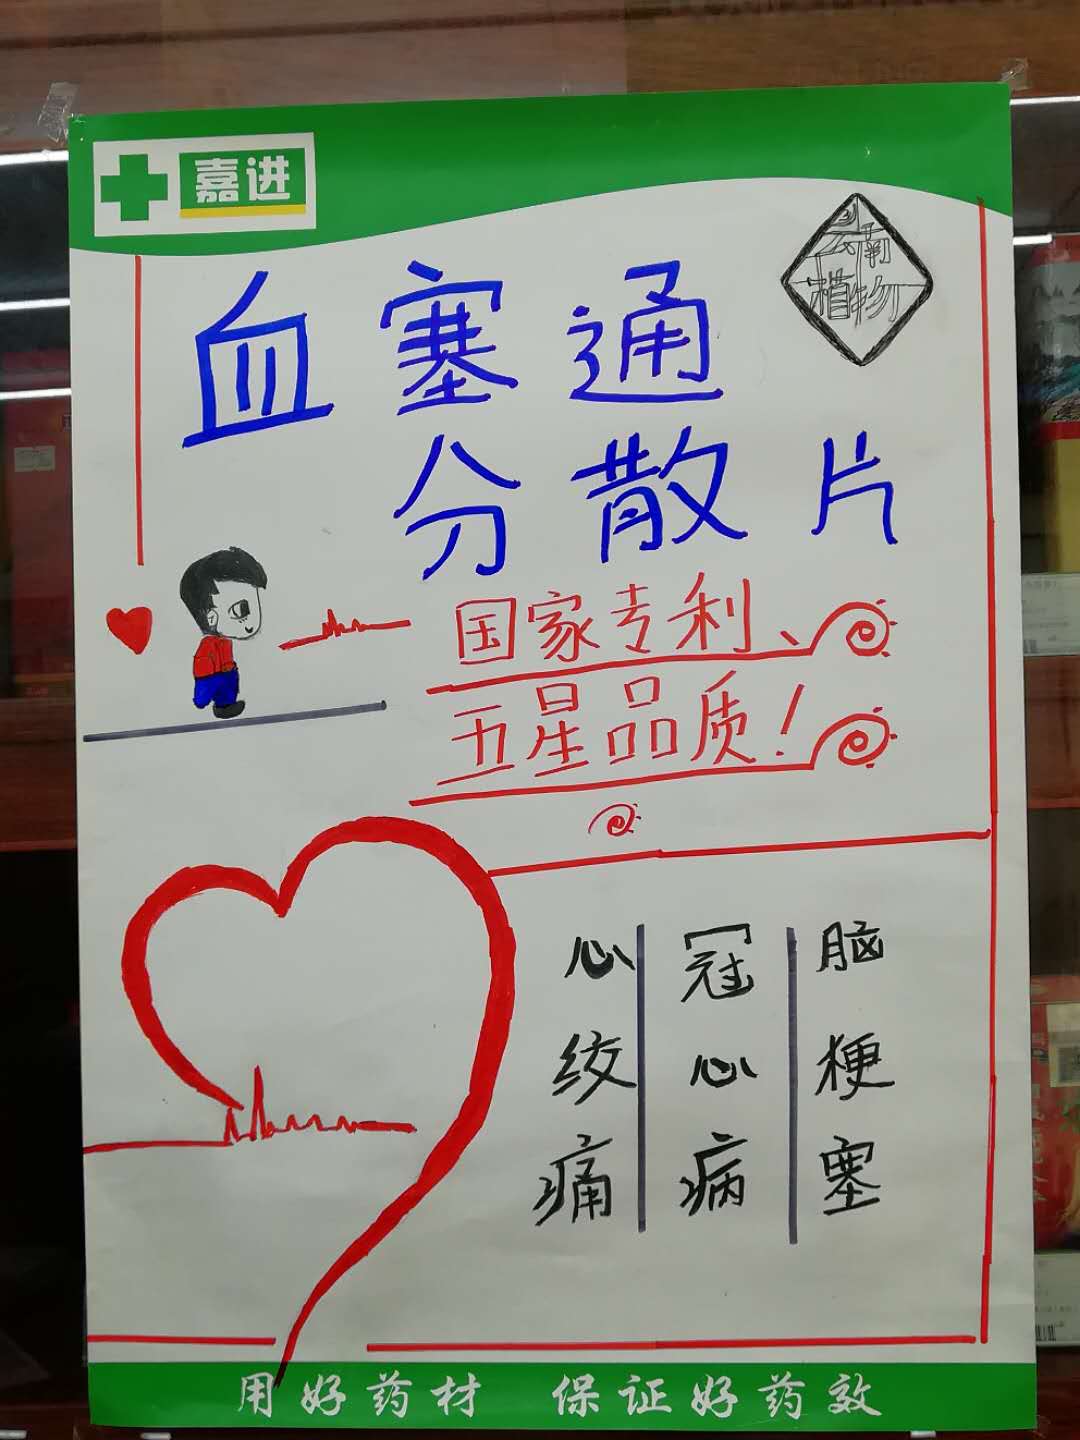 嘉进
云南
植物
血塞通
分散片
国家专利、
五星品质！
心绞痛
冠心病
脑梗塞
用好药材 保证好药效